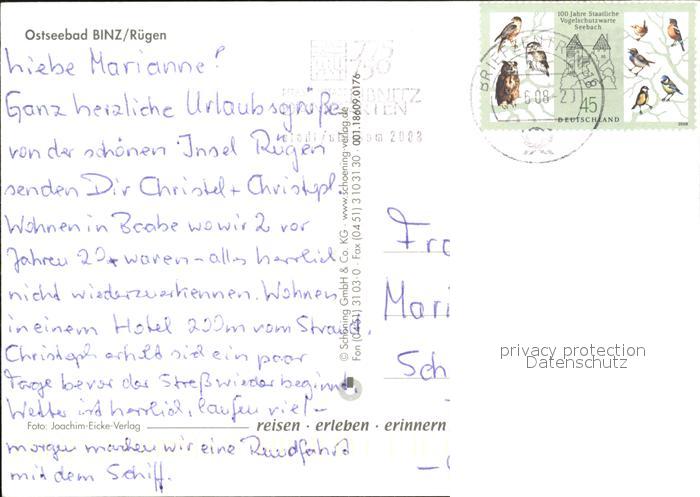 Ostseebad BINZ/Rügen
Liebe Marianne!
Ganz herzliche Urlaubsgrüße
von der schönen Insel Rügen
senden Dir Christel + Christoph.
Wohnen in Baabe wo wir 2 vor
Jahren waren - alles herrlich
nicht wiederzuerkennen. Wohnen
in einem Hotel 200m vom Strand.
Christoph erholt sich ein paar
Tage bevor der Streß wieder beginnt.
Wetter ist herrlich, laufen viel -
morgen machen wir eine Rundfahrt
mit dem Schiff.
Foto: Joachim-Eicke-Verlag
reisen · erleben · erinnern
© Schöning GmbH & Co. KG · www.schoening-verlag.de
Fon (04 51) 31 03-0 · Fax (04 51) 3 10 31 30 · 001.18609.0176
100 Jahre Staatliche
Vogelschutzwarte
Seebach
45
DEUTSCHLAND
2008
Fra
Mari
Sch
privacy protection
Datenschutz